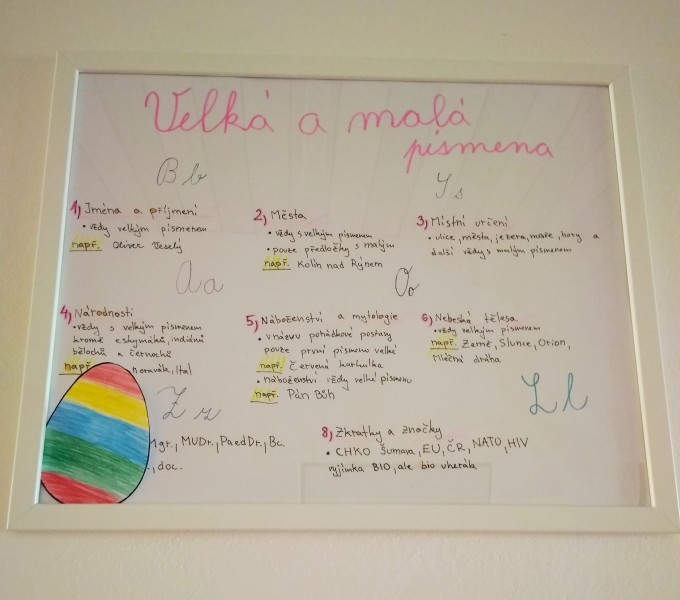 Velká a malá
písmena
B b
Y s
1) Jména a příjmení
• vždy velkým písmenem
např. Oliver Veselý
2) Města
• vždy s velkým písmenem
• pouze předložky s malým
např. Kolín nad Rýnem
3) Místní určení
• ulice, města, jezera, moře, hory a
další vždy s malým písmenem
A a
O o
4) Národnosti
• vždy s velkým písmenem
kromě eskymáků, indiánů
bělochů a černochů
např.
, Ital
5) Náboženství a mytologie
• v názvu pohádkové postavy
pouze první písmeno velké
např. Červená karkulka
• náboženství vždy velké písmeno
např. Pán Bůh
6) Nebeská tělesa
• vždy velkým písmenem
např. Země, Slunce, Orion,
Mléčná dráha
Z z
L l
Mgr., MUDr., PaedDr., Bc.
., doc.
8) Zkratky a značky
• CHKO Šumava, EU, ČR, NATO, HIV
vyjímka BIO, ale bio uherák